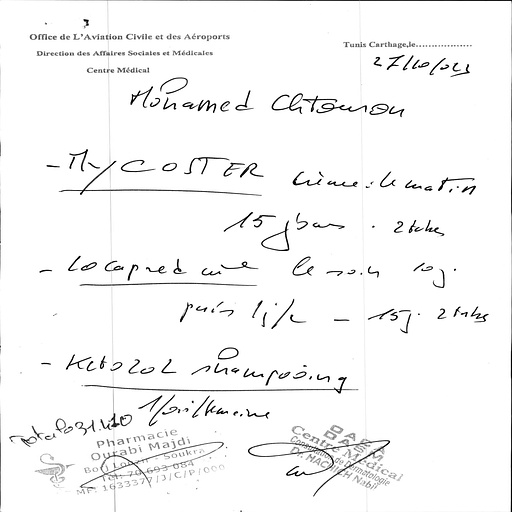 Office de L'Aviation Civile et des Aéroports
Direction des Affaires Sociales et Médicales
Centre Médical
Tunis Carthage,le..................
27/10/023
Mohamed Chtourou
- MYCOSTER crème : le matin
15 jours . 2 tubes
- Locapred crème le soir 10 j.
puis 1j/2 - 15j. 2 tubes
- Ketozol shampooing
1 fois/semaine
Pharmacie
Ourabi Majdi
Soukra
Tél: 70 693 084
MF: 1633377/J/C/P/000
OACA
DASM
Centre Médical
Consultation de Dermatologie
Dr. Nabil